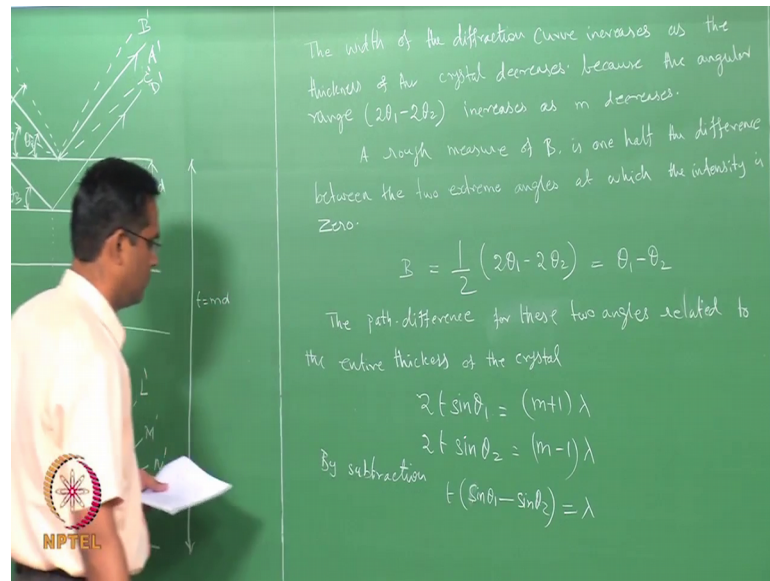 B'
A'
C'
D'
d
t=md
L'
M'
N'
The width of the diffraction curve increases as the
thickness of the crystal decreases. because the angular
range (2θ₁-2θ₂) increases as m decreases.
A rough measure of B. is one half the difference
between the two extreme angles at which the intensity is
Zero.
B = 1/2 (2θ₁-2θ₂) = θ₁-θ₂
The path-difference for these two angles related to
the entire thickness of the crystal
2t sinθ₁ = (m+1)λ
2t sinθ₂ = (m-1)λ
By subtraction
t(sinθ₁-sinθ₂) = λ
NPTEL